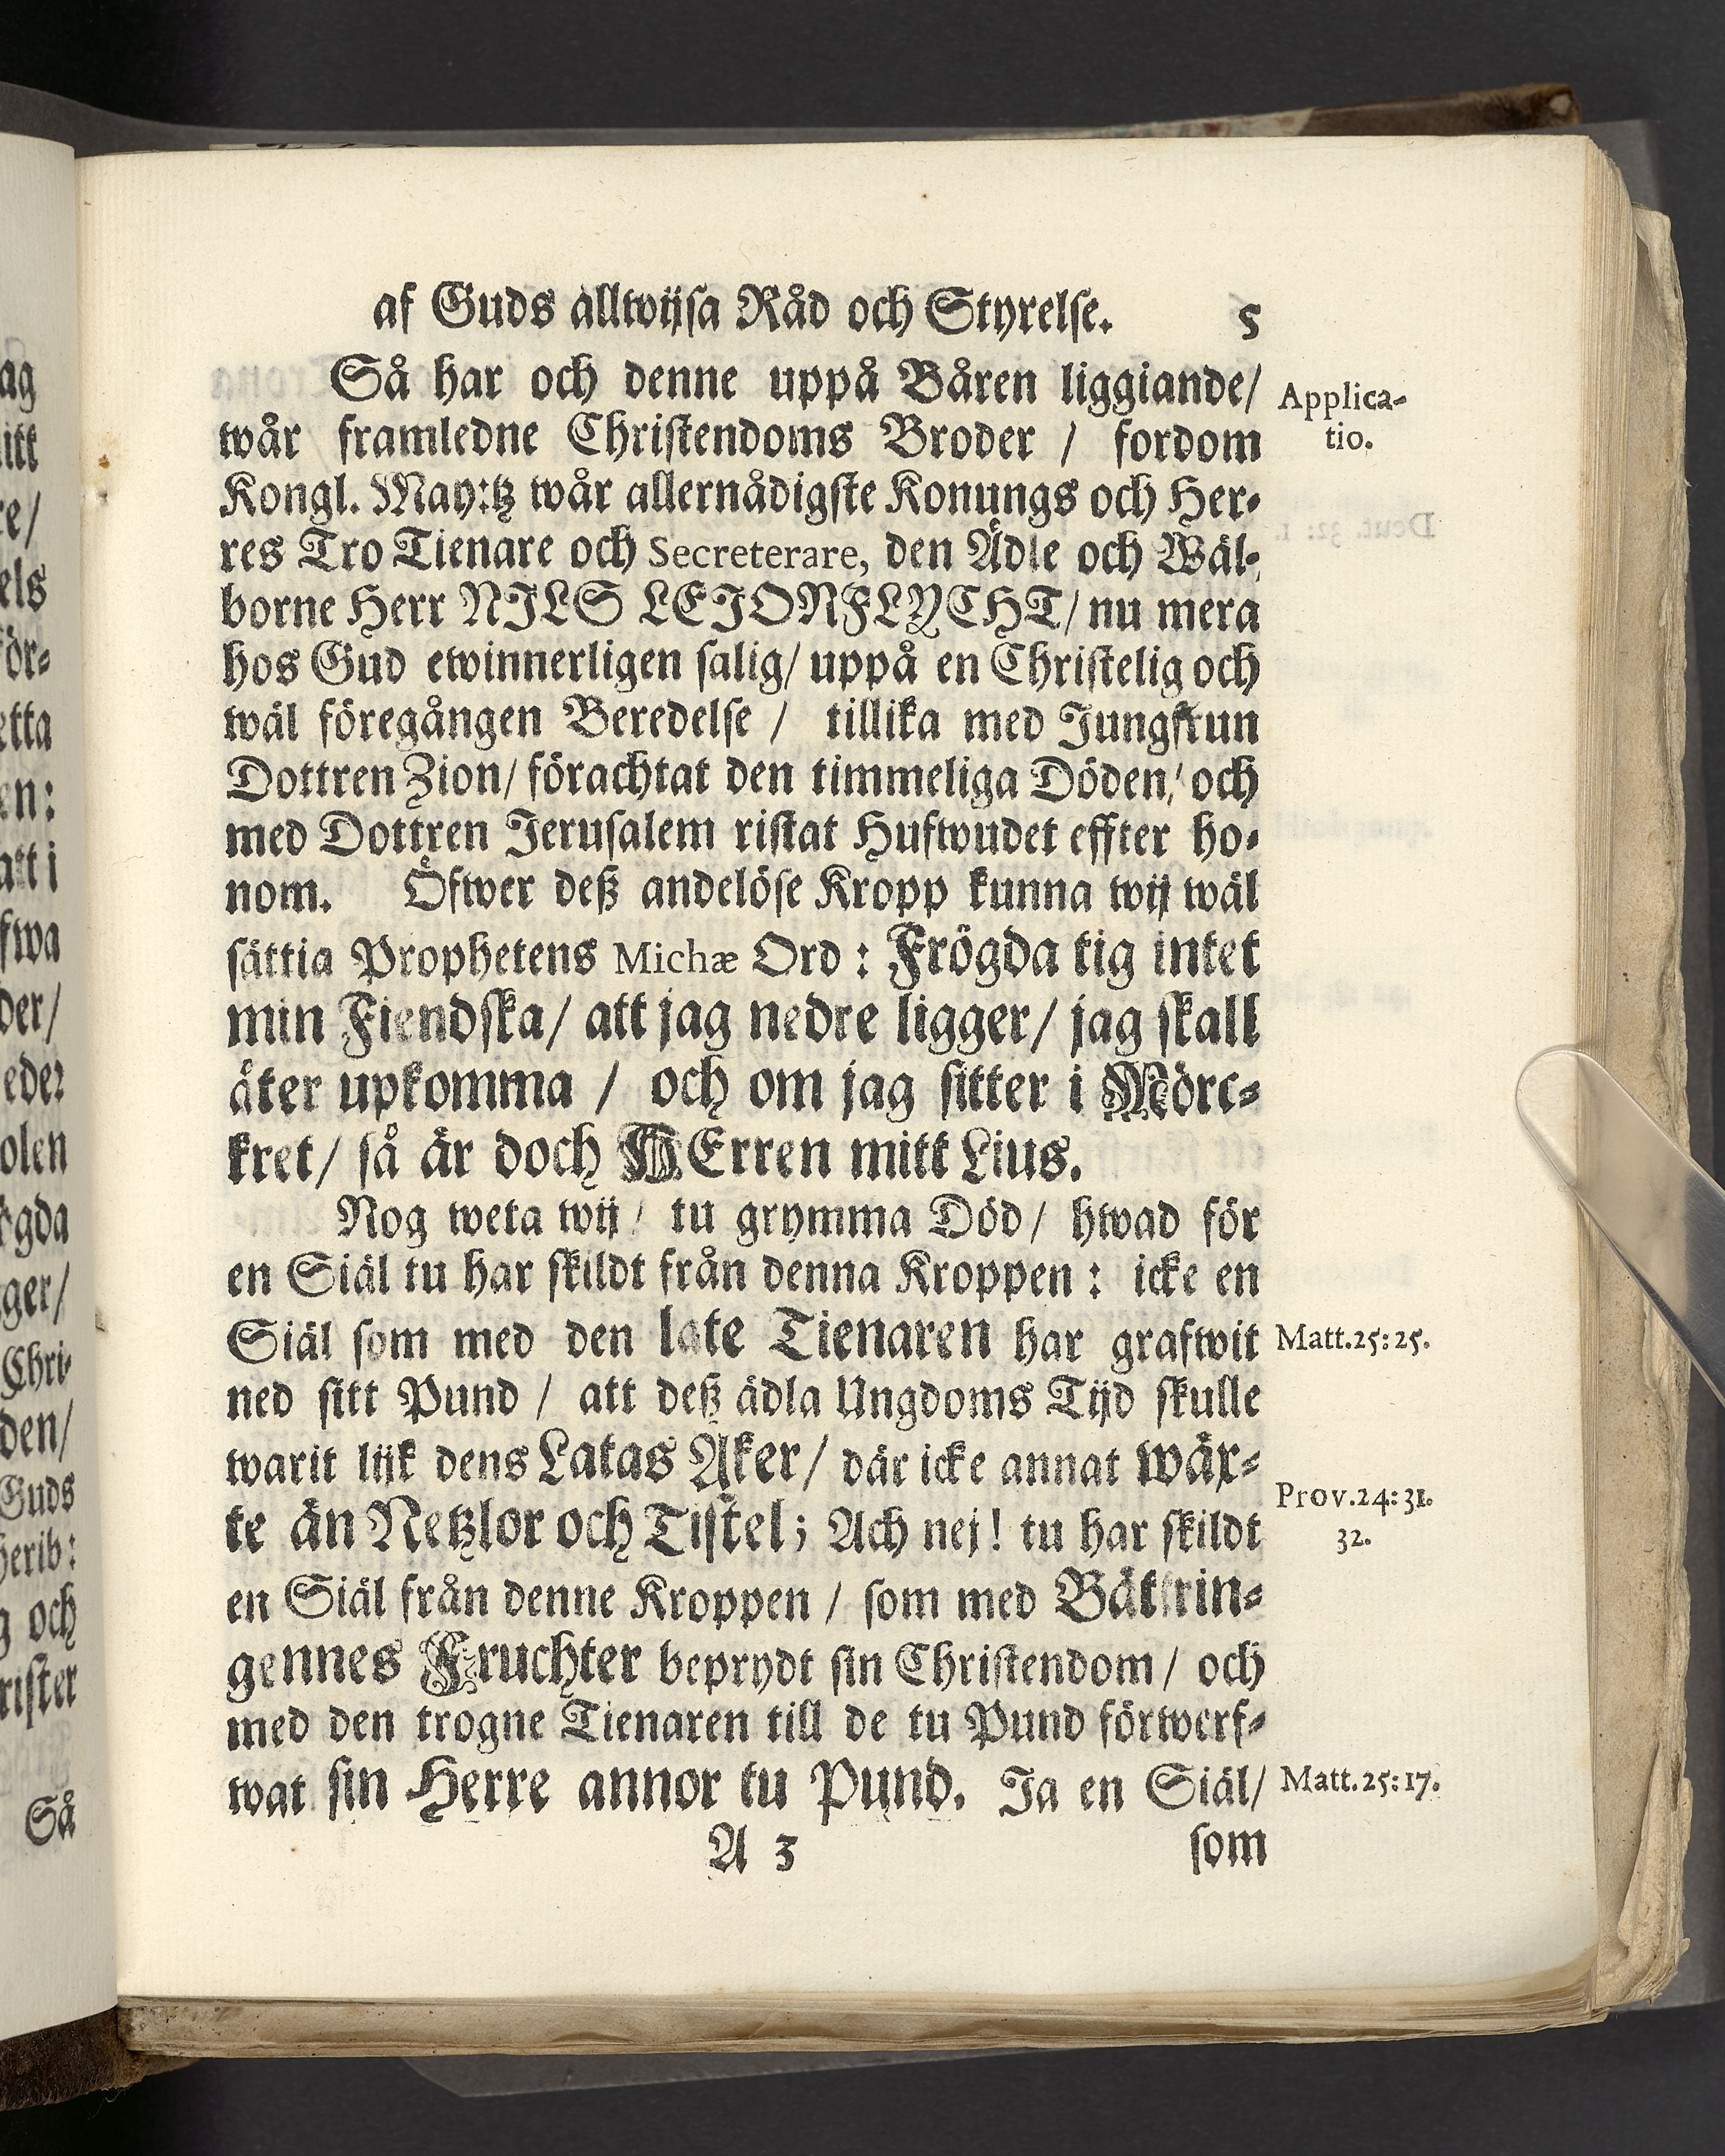 af Guds allwijsa Råd och Styrelse. 5
Så har och denne uppå Båren liggiande/
Applica-
tio.
wår framledne Christendoms Broder / fordom
Kongl. May:tz wår allernådigste Konungs och Her-
res Tro Tienare och Secreterare, den Ädle och Wäl-
borne Herr NILS LEIONFLYCHT/ nu mera
hos Gud ewinnerligen salig/ uppå en Christelig och
wäl föregången Beredelse / tillika med Jungfrun
Dottren Zion/ förachtat den timmeliga Döden/ och
med Dottren Jerusalem ristat Hufwudet effter ho-
nom. Öfwer deß andelöse Kropp kunna wij wäl
sättia Prophetens Michæ Ord : Frögda tig intet
min Fiendska/ att jag nedre ligger/ jag skall
åter upkomma / och om jag sitter i Mörc-
kret/ så är doch HErren mitt Lius.
Nog weta wij / tu grymma Död/ hwad för
en Siäl tu har skildt från denna Kroppen : icke en
Siäl som med den late Tienaren har grafwit
Matt.25:25.
ned sitt Pund / att deß ädla Ungdoms Tijd skulle
warit lijk dens Latas Åker/ där icke annat wäx-
te än Netzlor och Tistel; Ach nej! tu har skildt
Prov.24:31.
32.
en Siäl från denne Kroppen / som med Bättrin-
gennes Fruchter beprydt sin Christendom/ och
med den trogne Tienaren till de tu Pund förwerf-
wat sin Herre annor tu Pund. Ja en Siäl/
Matt.25:17.
A 3 som